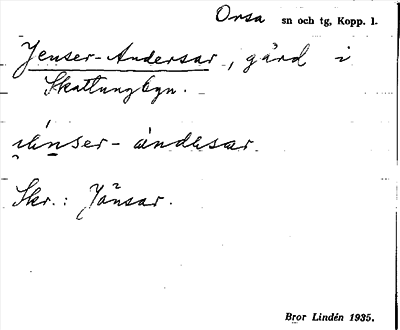 Orsa sn och tg, Kopp. l.
Jenser-Andersar, gård i
Skattungbyn.
Skr.: Jönsar.
Bror Lindén 1935.